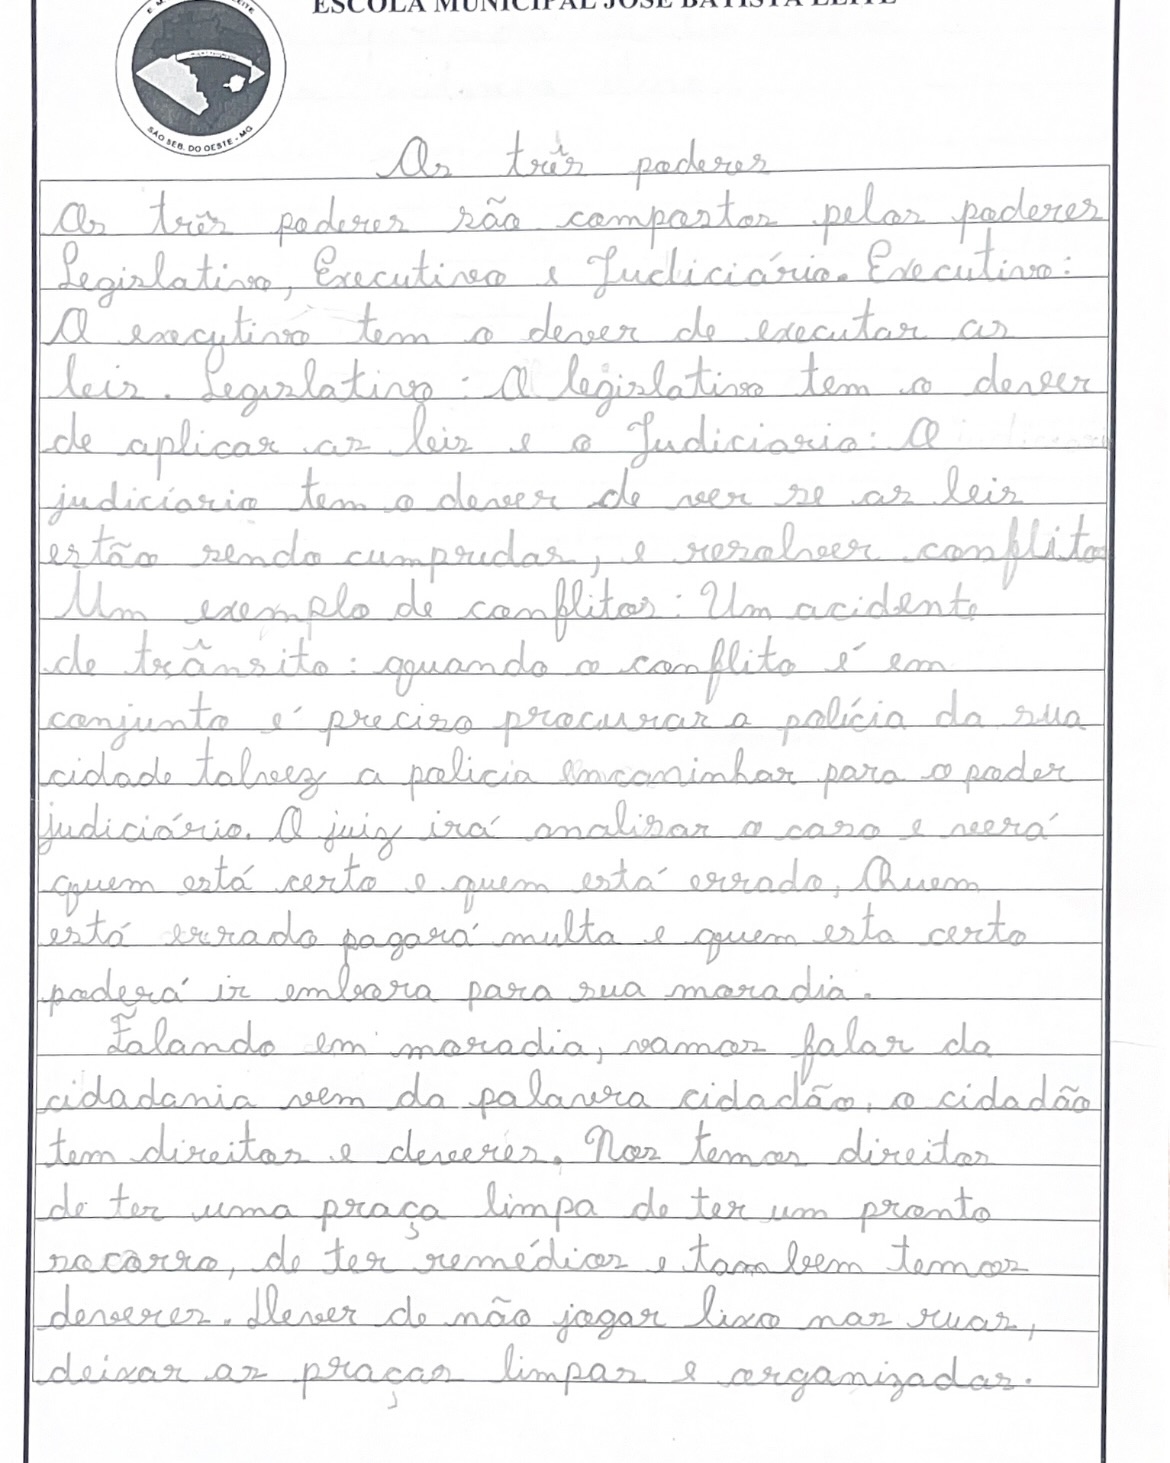 ESCOLA MUNICIPAL JOSÉ BATISTA LEITE
SÃO SEB. DO OESTE - MG
Os três poderes
Os três poderes são compostos pelos poderes
Legislativo, Executivo e Judiciário. Executivo:
O executivo tem o dever de executar as
leis. Legislativo: O legislativo tem o dever
de aplicar as leis e o Judiciario: O
judiciario tem o dever de ver se as leis
estão sendo cumpridas, e resolver conflito
Um exemplo de conflitos: Um acidente
de trânsito: quando o conflito é em
conjunto é preciso procurar a polícia da sua
cidade talvez a policia encaminhar para o poder
judiciário. O juiz irá analisar o caso e verá
quem está certo e quem está errado, Quem
está errado pagará multa e quem esta certo
poderá ir embora para sua moradia.
Falando em moradia, vamos falar da
cidadania vem da palavra cidadão, o cidadão
tem direitos e deveres. Nos temos direitos
de ter uma praça limpa de ter um pronto
socorro, de ter remédios e tambem temos
deveres. Dever de não jogar lixo nas ruas,
deixar as praças limpas e organizadas.